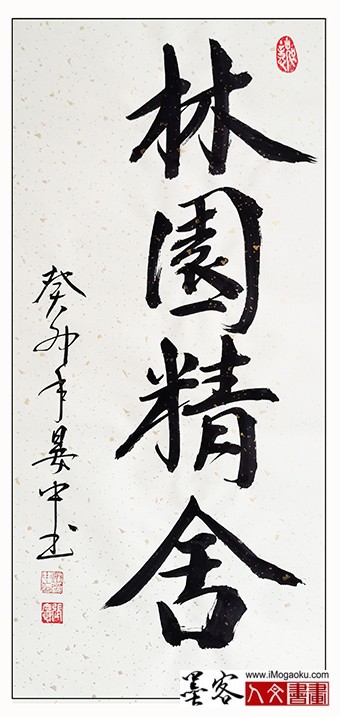 林園精舍
癸卯年晏中书
墨客
www.iMogaoku.com
人文書畫